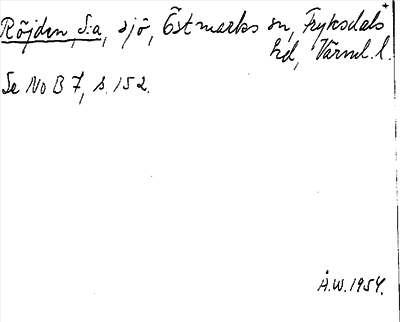 Röjden, S:a, sjö, Östmarks sn, Fryksdals
hd, Värml. l.
Se No B 7, s. 152.
Å.W. 1954.